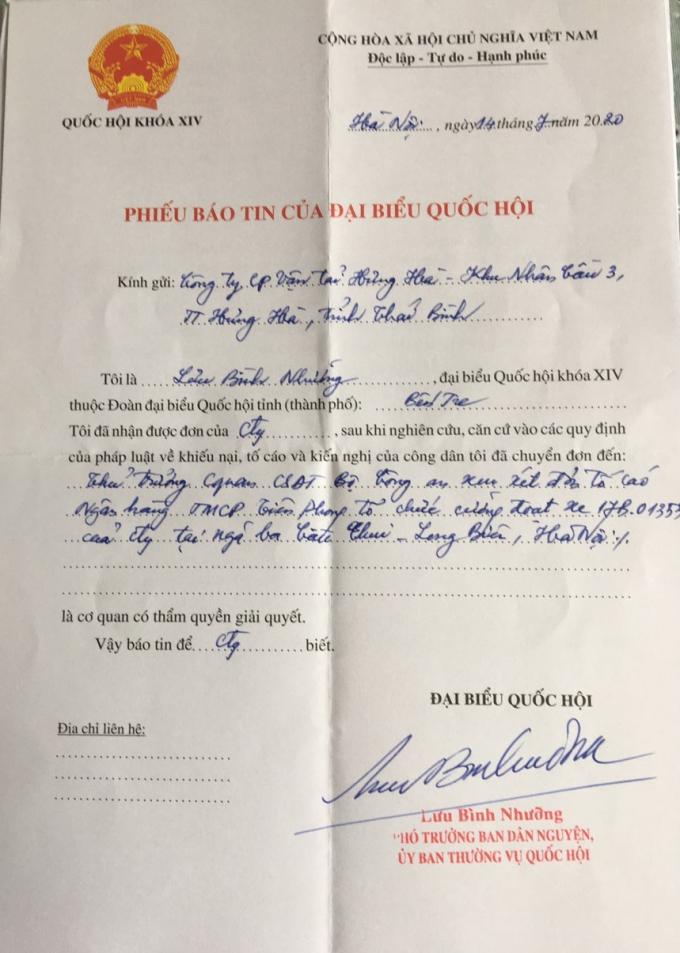 CỘNG HÒA XÃ HỘI CHỦ NGHĨA VIỆT NAM
Độc lập - Tự do - Hạnh phúc
QUỐC HỘI KHÓA XIV
Hà Nội, ngày 14 tháng 7 năm 2020
PHIẾU BÁO TIN CỦA ĐẠI BIỂU QUỐC HỘI
Kính gửi: Công ty CP Vận tải Hưng Hà - Khu Nhân Cầu 3,
TT Hưng Hà, tỉnh Thái Bình
Tôi là Lưu Bình Nhưỡng, đại biểu Quốc hội khóa XIV
thuộc Đoàn đại biểu Quốc hội tỉnh (thành phố): Bến Tre
Tôi đã nhận được đơn của Cty, sau khi nghiên cứu, căn cứ vào các quy định
của pháp luật về khiếu nại, tố cáo và kiến nghị của công dân tôi đã chuyển đơn đến:
Thủ trưởng Cquan CSĐT Bộ Công an xem xét đơn tố cáo
Ngân hàng TMCP Tiên Phong tổ chức cưỡng đoạt xe 17B.01353
của Cty tại ngã ba Cầu Chui - Long Biên, Hà Nội./.
là cơ quan có thẩm quyền giải quyết.
Vậy báo tin để Cty biết.
ĐẠI BIỂU QUỐC HỘI
Địa chỉ liên hệ:
Lưu Bình Nhưỡng
PHÓ TRƯỞNG BAN DÂN NGUYỆN,
ỦY BAN THƯỜNG VỤ QUỐC HỘI